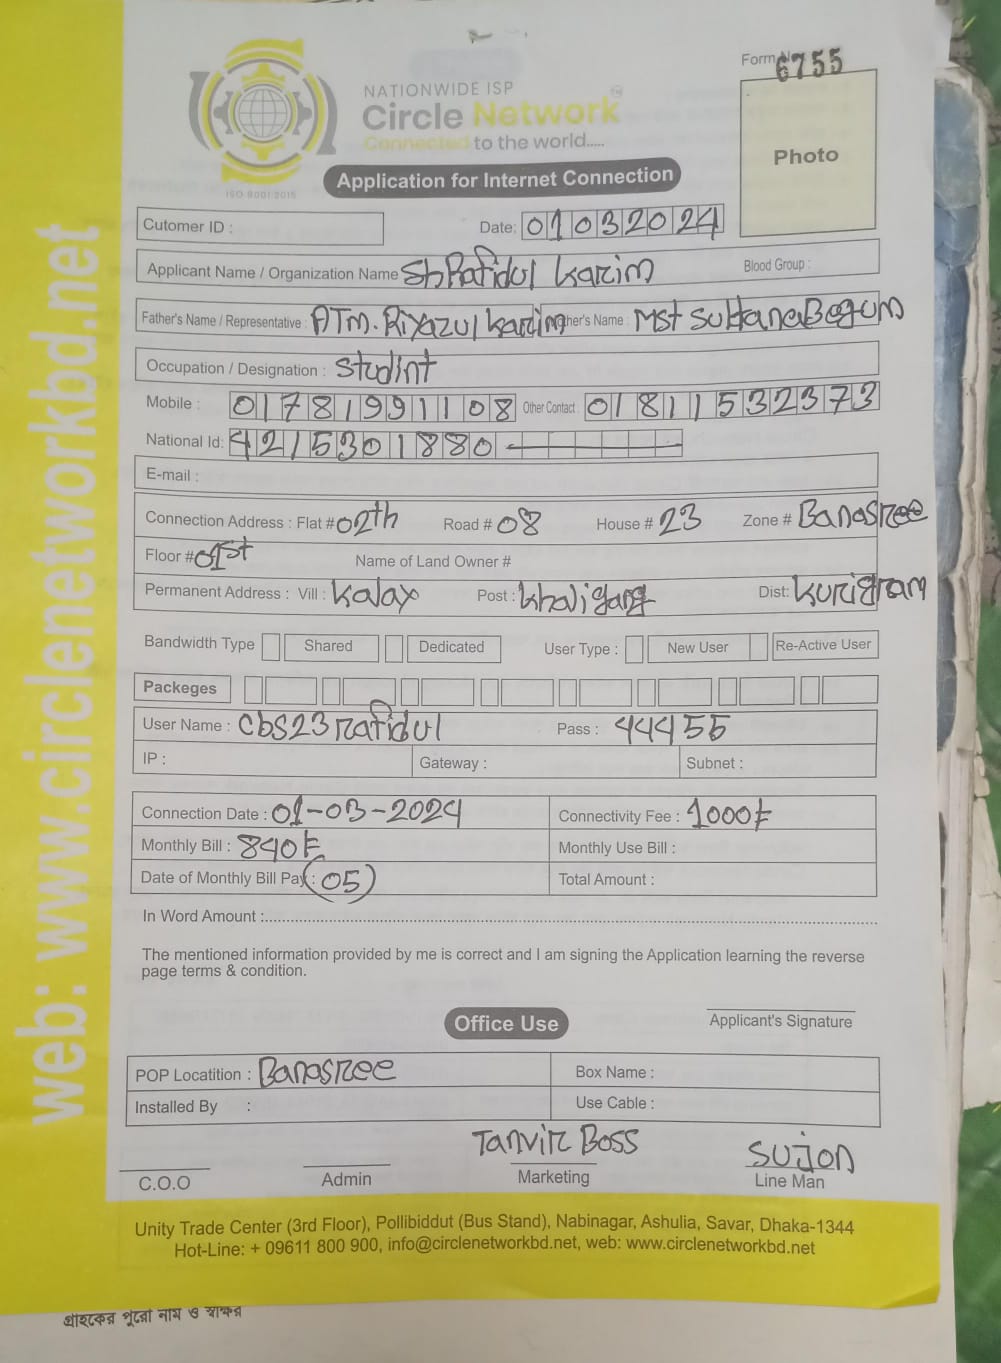 Form No 6755
NATIONWIDE ISP
Circle Network
Connected to the world.....
ISO 9001:2015
Photo
Application for Internet Connection
Cutomer ID :
Date: 01032024
Applicant Name / Organization Name Sh Rafidul Karim
Blood Group :
Father's Name / Representative : ATM. Riyazul Karim Mother's Name : Mst Sultana Begum
Occupation / Designation : Studint
Mobile : 01781991108 Other Contact : 01811532373
National Id: 4215301880
E-mail :
Connection Address : Flat # 02th Road # 08 House # 23 Zone # Banasree
Floor # 01st Name of Land Owner #
Permanent Address : Vill : Kalay Post : Khaligang Dist: Kurigram
Bandwidth Type Shared Dedicated User Type : New User Re-Active User
Packeges
User Name : Cbs23rafidul Pass : 44455
IP : Gateway : Subnet :
Connection Date : 01-03-2024 Connectivity Fee : 1000৳
Monthly Bill : 840৳ Monthly Use Bill :
Date of Monthly Bill Pay : 05 Total Amount :
In Word Amount :
The mentioned information provided by me is correct and I am signing the Application learning the reverse
page terms & condition.
Applicant's Signature
Office Use
POP Locatition : Banasree Box Name :
Installed By : Use Cable :
Tanvir Boss Sujon
C.O.O Admin Marketing Line Man
Unity Trade Center (3rd Floor), Pollibiddut (Bus Stand), Nabinagar, Ashulia, Savar, Dhaka-1344
Hot-Line: + 09611 800 900, info@circlenetworkbd.net, web: www.circlenetworkbd.net
গ্রাহকের পুরো নাম ও স্বাক্ষর
web: www.circlenetworkbd.net